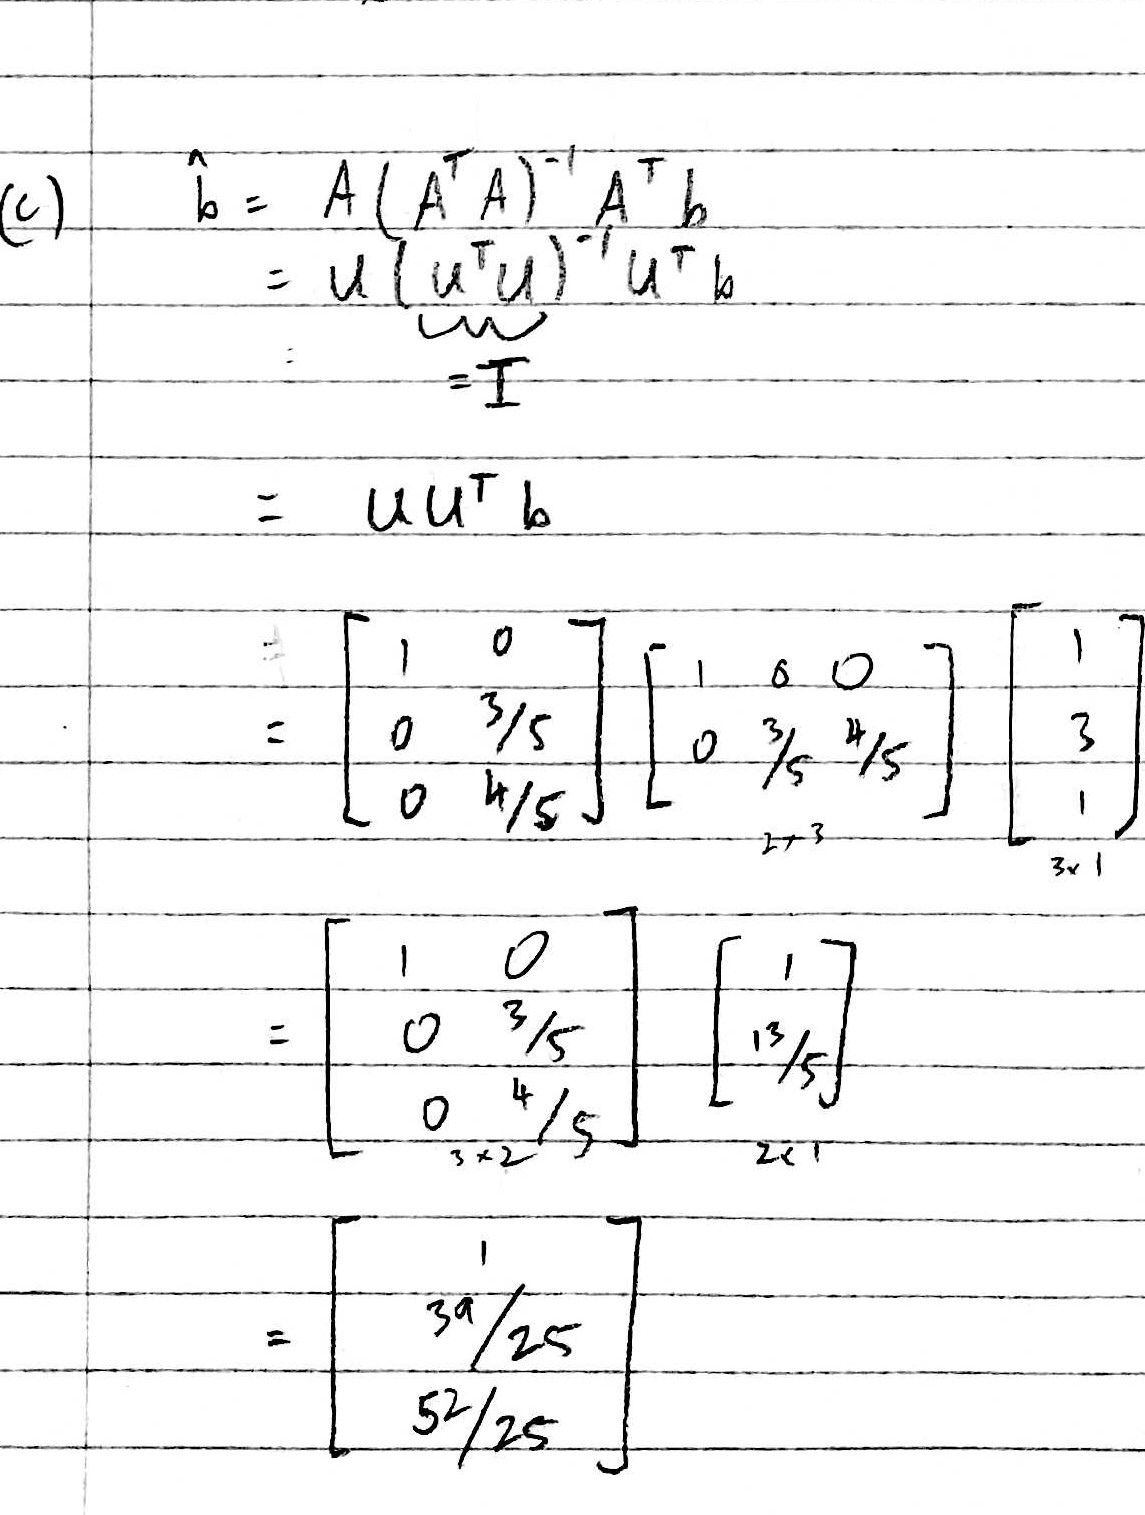 (c) b̂ = A(AᵀA)⁻¹Aᵀb
= U(UᵀU)⁻¹Uᵀb
= I
= UUᵀb
= [1 0; 0 3/5; 0 4/5] [1 0 0; 0 3/5 4/5] 2×3 [1; 3; 1] 3×1
= [1 0; 0 3/5; 0 4/5] 3×2 [1; 13/5] 2×1
= [1; 39/25; 52/25]